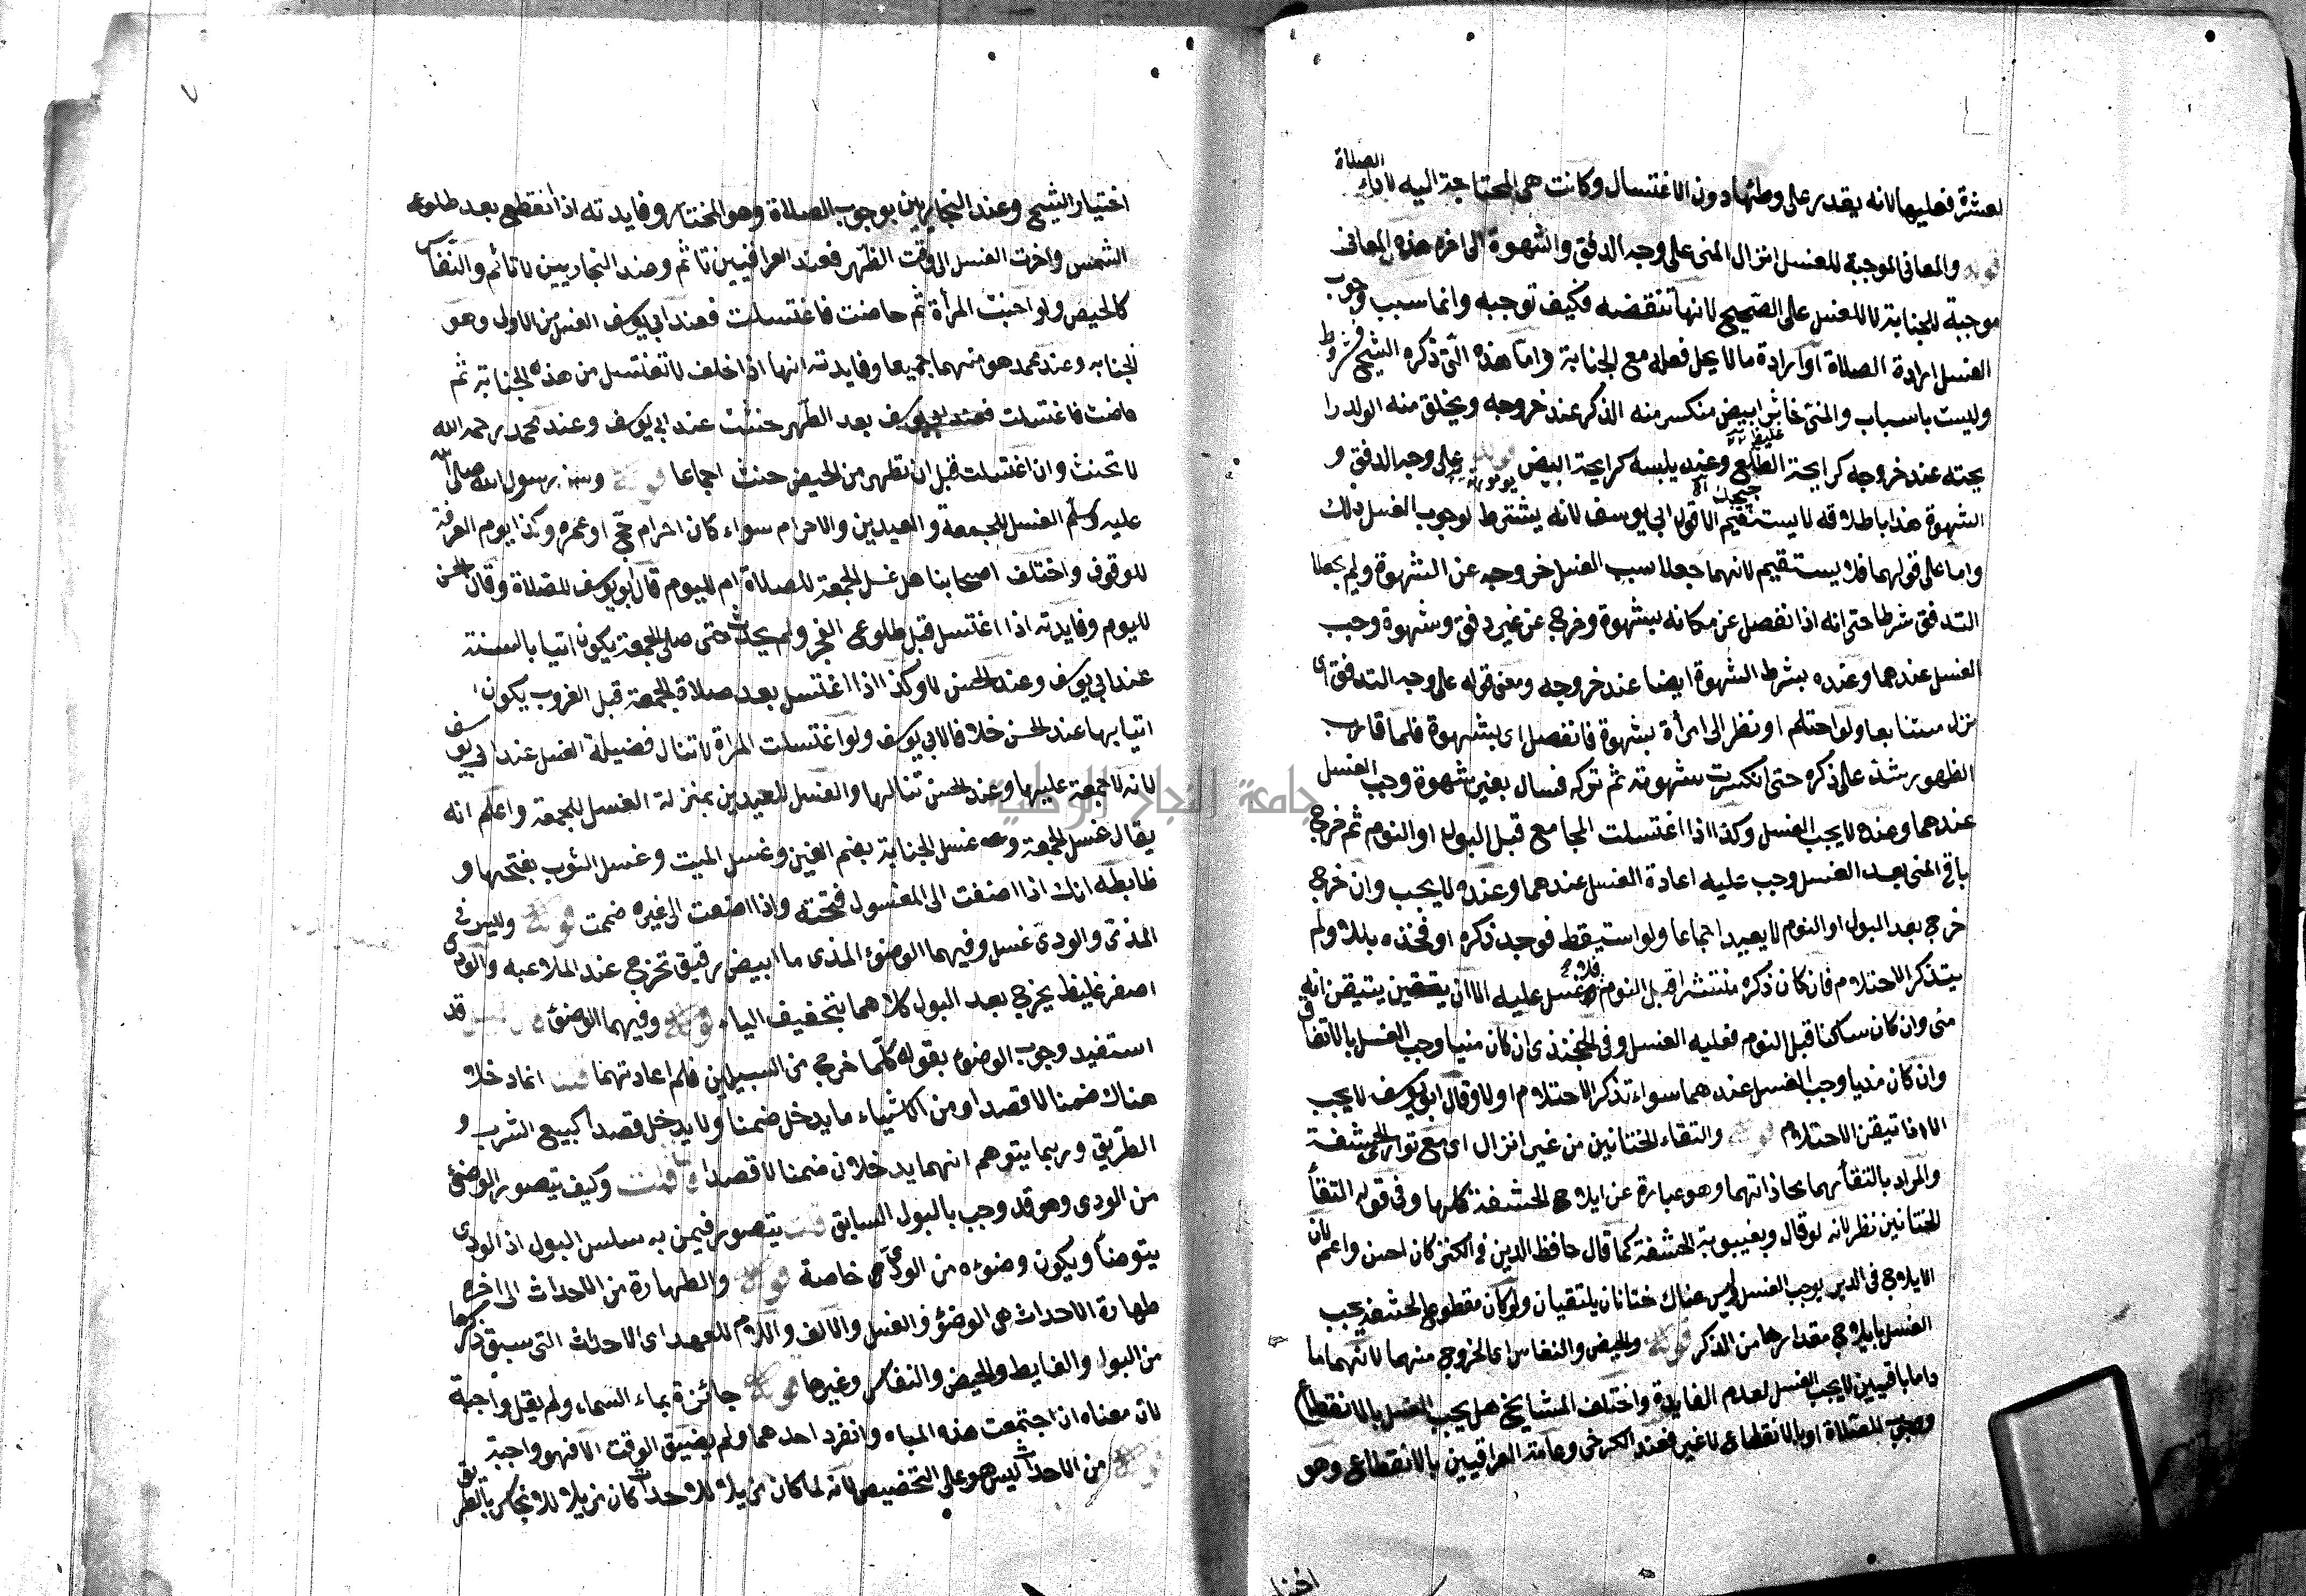 لعشرة فعليها لانه يقدر على وطئها دون الاغتسال وكانت هى المحتاجة اليه لاداء الصلاة
قوله والمعانى الموجبة للغسل انزال المنى على وجه الدفق والشهوة الى اخره هذه المعانى
موجبة للجنابة لا للغسل على الصحيح لانها تنقضه فكيف توجبه وانما سبب وجوب
الغسل ارادة الصلاة او ارادة ما لا يحل فعله مع الجنابة واما هذه التى ذكره الشيخ فشروط
وليست باسباب والمنى خاثر ابيض منكسر منه الذكر عند خروجه ويخلق منه الولد را
يحته عند خروجه كرايحة الطلع وعند يلبسه كرايحة البيض قوله على وجه الدفق و
الشهوة هذا باطلاقه لا يستقيم الا قول ابي يوسف لانه يشترط لوجوب الغسل ذلك
واما على قولهما فلا يستقيم لانهما جعلا سبب الغسل خروجه عن الشهوة ولم يجعلا
التدفق شرطا حتى انه اذا نفصل عن مكانه بشهوة وخرج عن غير دفق وشهوة وجب
الغسل عندهما وعنده يشرط الشهوة ايضا عند خروجه ومعنى قوله على وجه التدفق اى
نزل متتابعا ولو احتلم او نظر الى امرأة بشهوة فانفصل اى بشهوة فلما قارب
الظهور شد على ذكره حتى انكسرت شهوته ثم تركه فسال بغير شهوة وجب الغسل
عندهما وعنده لا يجب الغسل وكذا اذا اغتسلت المجامع قبل البول او النوم ثم خرج
باقى المنى بعد الغسل وجب عليه اعادة الغسل عندهما وعنده لا يجب وان خرج
خرج بعد البول او النوم لا يعيد اجماعا ولو استيقظ فوجد ذكره او فخذه بللا ولم
يتذكر الاحتلام فان كان ذكره منتشرا قبل النوم فلا غسل عليه الا ان يتيقن انه
منى وان كان ساكنا قبل النوم فعليه الغسل وفى الخجندى ان كان منيا وجب الغسل بالاتفاق
وان كان مذيا وجب الغسل عندهما سواء تذكر الاحتلام اولا وقال ابو يوسف لا يجب
الا اذا تيقن الاحتلام قوله والتقاء الختانين من غير انزال اى مع توارى الحشفة
والمراد بالتقائهما محاذاتهما وهو عبارة عن ايلاج الحشفة كلها وفى قوله التقأ
الختانين نظر لانه لو قال وبغيبوبة الحشفة كما قال حافظ الدين فى الكنز كان احسن واعم لان
الايلاج فى الدبر يوجب الغسل وليس هناك ختانان يلتقيان ولو كان مقطوع الحشفة يجب
الغسل بايلاج مقدارها من الذكر قوله والحيض والنفاس اى الخروج منهما لانهما ما
داما باقيين لا يجب الغسل لعدم الفايدة واختلف المشايخ هل يجب الغسل بالانقطاع
ووجوب للصلاة او بالانقطاع لا غير فعند الكرخى وعامة العراقيين بالانقطاع وهو
اختيار الشيخ وعند البخاريين بوجوب الصلاة وهو المختار وفايدته اذا انقطع بعد طلوع
الشمس واخرت الغسل الى وقت الظهر فعند العراقيين تأثم وعند البخاريين لا تأثم والنفاس
كالحيض ولو اجنبت المرأة ثم حاضت فاغتسلت فعند ابي يوسف الغسل من الاول وهو
الجنابه وعند محمد هو منهما جميعا وفايدته انها اذا حلف لا تغتسل من هذه الجنابة ثم
حاضت فاغتسلت بعد الطهر حنثت عند ابي يوسف وعند محمد رحمه الله
لا تحنث وان اغتسلت قبل ان تطهر من الحيض حنث اجماعا قوله وسن رسول الله صلى الله
عليه وسلم الغسل للجمعة والعيدين والاحرام سواء كان احرام حج او عمره وكذا يوم العرفة
للوقوف واختلف اصحابنا هل غسل الجمعة للصلاة ام لليوم قال ابو يوسف للصلاة وقال الحسن
لليوم وفايدته اذا اغتسل قبل طلوع الفجر ولم يحدث حتى صلى الجمعة يكون اتيا بالسنة
عند ابي يوسف وعند الحسن لا وكذا اذا اغتسل بعد صلاة الجمعة قبل الغروب يكون
اتيا بها عند الحسن خلافا لابي يوسف ولو اغتسلت المراة لا تنال فضيلة الغسل عند ابي يوسف
لانه لا جمعة عليها وعند الحسن تنالها والغسل للعيدين بمنزلة الغسل للجمعة واعلم انه
يقال غسل الجمعة وغسل الجنابة بضم الغين وغسل الميت وغسل الثوب بفتحها و
ظابطه انك اذا اضفت الى المغسول فتحته واذا اضفت الى غيره ضممت قوله وليس فى
المذى والودى غسل وفيهما الوضوء المذى ما ابيض رقيق تخرج عند الملاعبه والودى
اصفر غليظ يخرج بعد البول كلاهما بتخفيف الياء قوله وفيهما الوضوء قد
استفيد وجوب الوضوء بقوله كلما خرج من السبيلين فلم اعادتهما قلنا انما دخلا
هناك ضمنا لا قصدا ومن الاشياء ما يدخل ضمنا ولا يدخل قصدا كبيع الشرب و
الطريق وربما يتوهم انهما يدخلان ضمنا لا قصدا وكيف يتصور الوضوء
من الودى وهو قد وجب بالبول السابق قلت يتصور فيمن به سلس البول اذ الودى
يتوضأ ويكون وضوءه من الودى خاصة قوله والطهارة من الاحداث الى اخره
طهارة الاحداث هى الوضوء والغسل والالف واللام للعهد اى الاحداث التى سبق ذكرها
من البول والغايط والحيض والنفاس وغيرها قوله جائزة بماء السماء ولم يقل واجبة
لان معناه ان اجتمعت هذه المياه وانفرد احدهما ولم يضيق الوقت الا فهو واجبة
قوله من الاحداث ليس هو على التخصيص لانه لما كان مزيلا للاحداث كان مزيلا للانجاس بالطريق
جامعة النجاح الوطنية